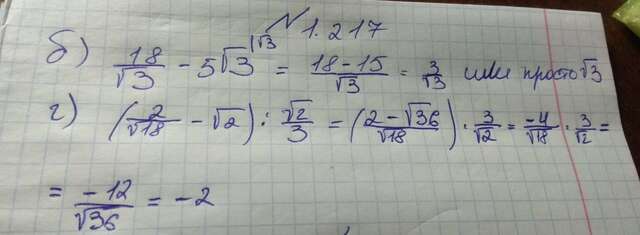 № 1.217
б) 18/√3 - 5√3 |√3 = 18-15/√3 = 3/√3 или просто √3
г) (2/√18 - √2) : √2/3 = (2-√36/√18) · 3/√2 = -4/√18 · 3/√2 =
= -12/√36 = -2